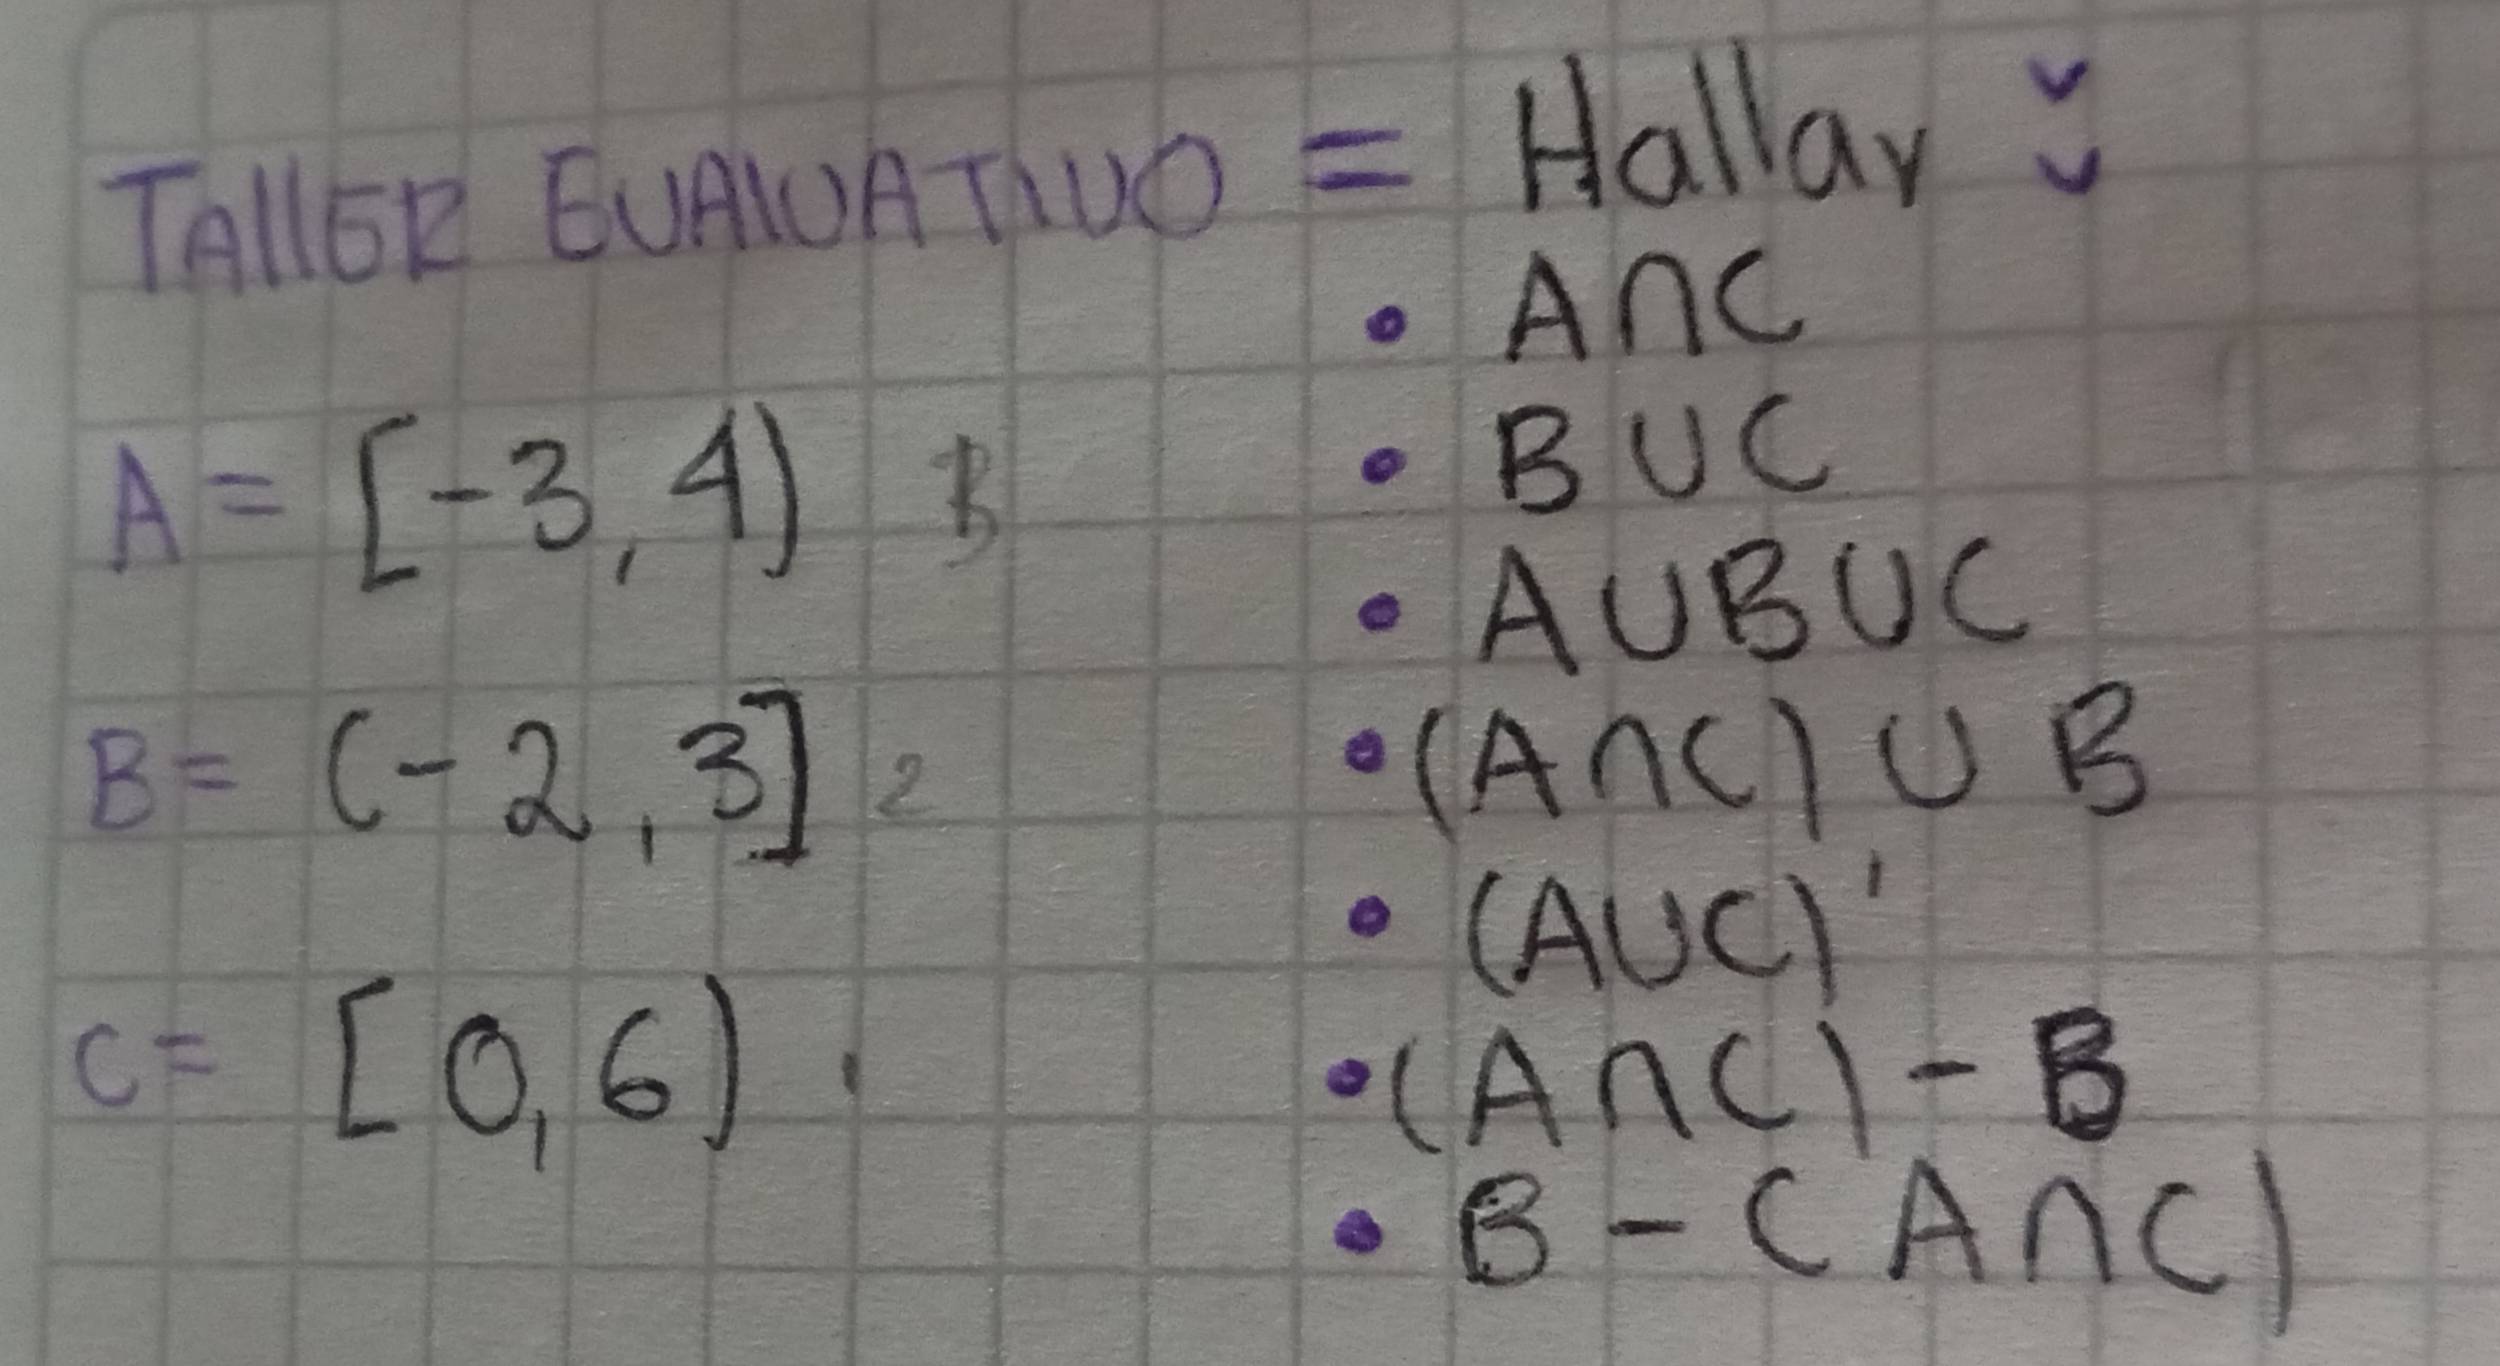 TAllER EVAlUATIVO = Hallar
A = [-3, 4) B
B = (-2, 3] 2
C = [0, 6)
• A∩C
• B∪C
• A∪B∪C
• (A∩C) ∪ B
• (A∪C)'
• (A∩C) - B
• B - (A∩C)